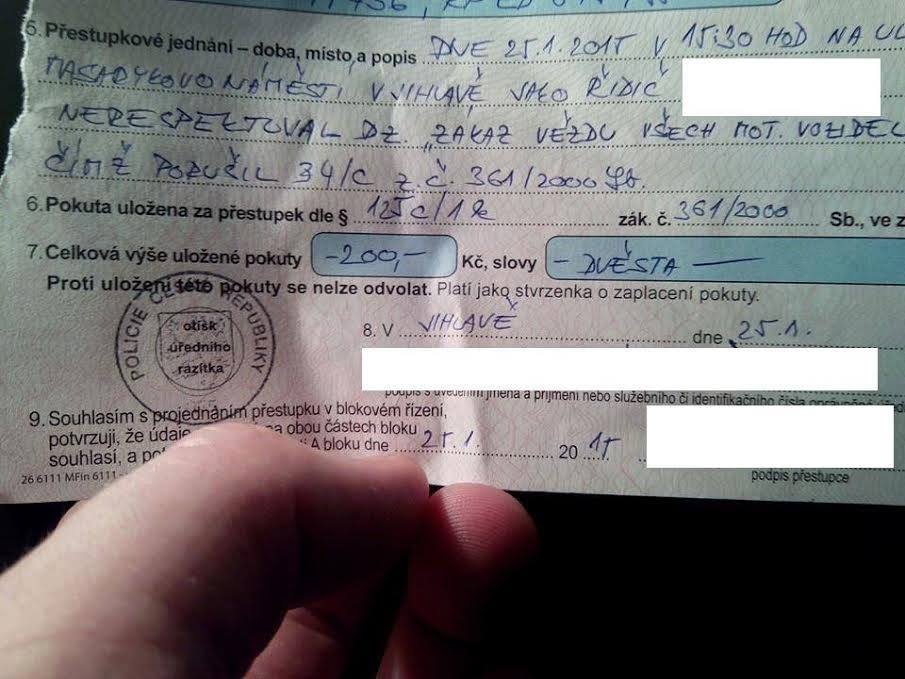 5. Přestupkové jednání – doba, místo a popis DNE 25.1.2015 V 15:30 HOD NA UL
MASARYKOVO NÁMĚSTÍ V JIHLAVĚ JAKO ŘIDIČ
NERESPEKTOVAL DZ „ZÁKAZ VJEZDU VŠECH MOT. VOZIDEL
ČÍMŽ PORUŠIL 34/C z.č. 361/2000 Sb.
6. Pokuta uložena za přestupek dle § 125c/1k zák. č. 361/2000 Sb., ve z
7. Celková výše uložené pokuty -200,- Kč, slovy - DVĚSTA -
Proti uložení této pokuty se nelze odvolat. Platí jako stvrzenka o zaplacení pokuty.
POLICIE ČESKÉ REPUBLIKY
otisk
úředního
razítka
8. V JIHLAVĚ dne 25.1.
podpis s uvedením jména a příjmení nebo služebního či identifikačního čísla
9. Souhlasím s projednáním přestupku v blokovém řízení,
potvrzuji, že údaje na obou částech bloku
souhlasí, a A bloku dne 25.1. 2015
26 6111 MFin 6111 -
podpis přestupce